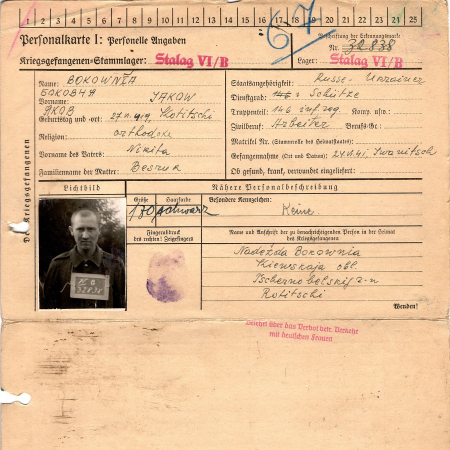 1 2 3 4 5 6 7 8 9 10 11 12 13 14 15 16 17 18 19 20 21 22 23 24 25
67
Personalkarte I: Personelle Angaben
Beschriftung der Erkennungsmarke
Nr. 32838
Kriegsgefangenen-Stammlager: Stalag VI/B
Lager: Stalag VI/B
Des Kriegsgefangenen
Name: BOKOWNIA
БОКОВНЯ
Vorname: JAKOW
ЯКОВ
Geburtstag und -ort: 27.11.1919, Rotitschi
Religion: orthodoxe
Vorname des Vaters: Nikita
Familienname der Mutter:
Staatsangehörigkeit: Russe - Ukrainer
Dienstgrad: Schütze
Truppenteil: 146 inf. reg. Komp. usw.:
Zivilberuf: Arbeiter Berufs-Gr.:
Matrikel Nr. (Stammrolle des Heimatstaates):
Gefangennahme (Ort und Datum):
Ob gesund, krank, verwundet eingeliefert:
Lichtbild
Nähere Personalbeschreibung
Größe Haarfarbe Besondere Kennzeichen:
170 schwarz Keine
Fingerabdruck
des rechten! Zeigefingers
Name und Anschrift der zu benachrichtigenden Person in der Heimat
des Kriegsgefangenen
Nadežda Bokownia
Kiewskaja obl.
Tschernobelskij r-n
Rotitschi
VI B
32838
Wenden!
Belehrt über das Verbot betr. Verkehr
mit deutschen Frauen